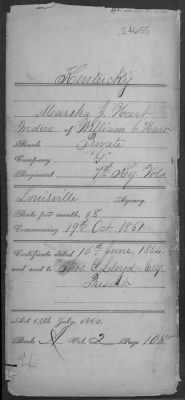 24655
Kentucky
Martha J. Hart
Widow of William C. Hart
Rank Private
Company "G"
Regiment 7th Ky Vols
Louisville Agency.
Rate per month, $8
Commencing 19th Oct. 1861
Certificate dated 16th June, 1864
and sent to Thos. C. Lloyd Esq.
Present
Act 14th July, 1862.
Book A Vol. 2 Page 108